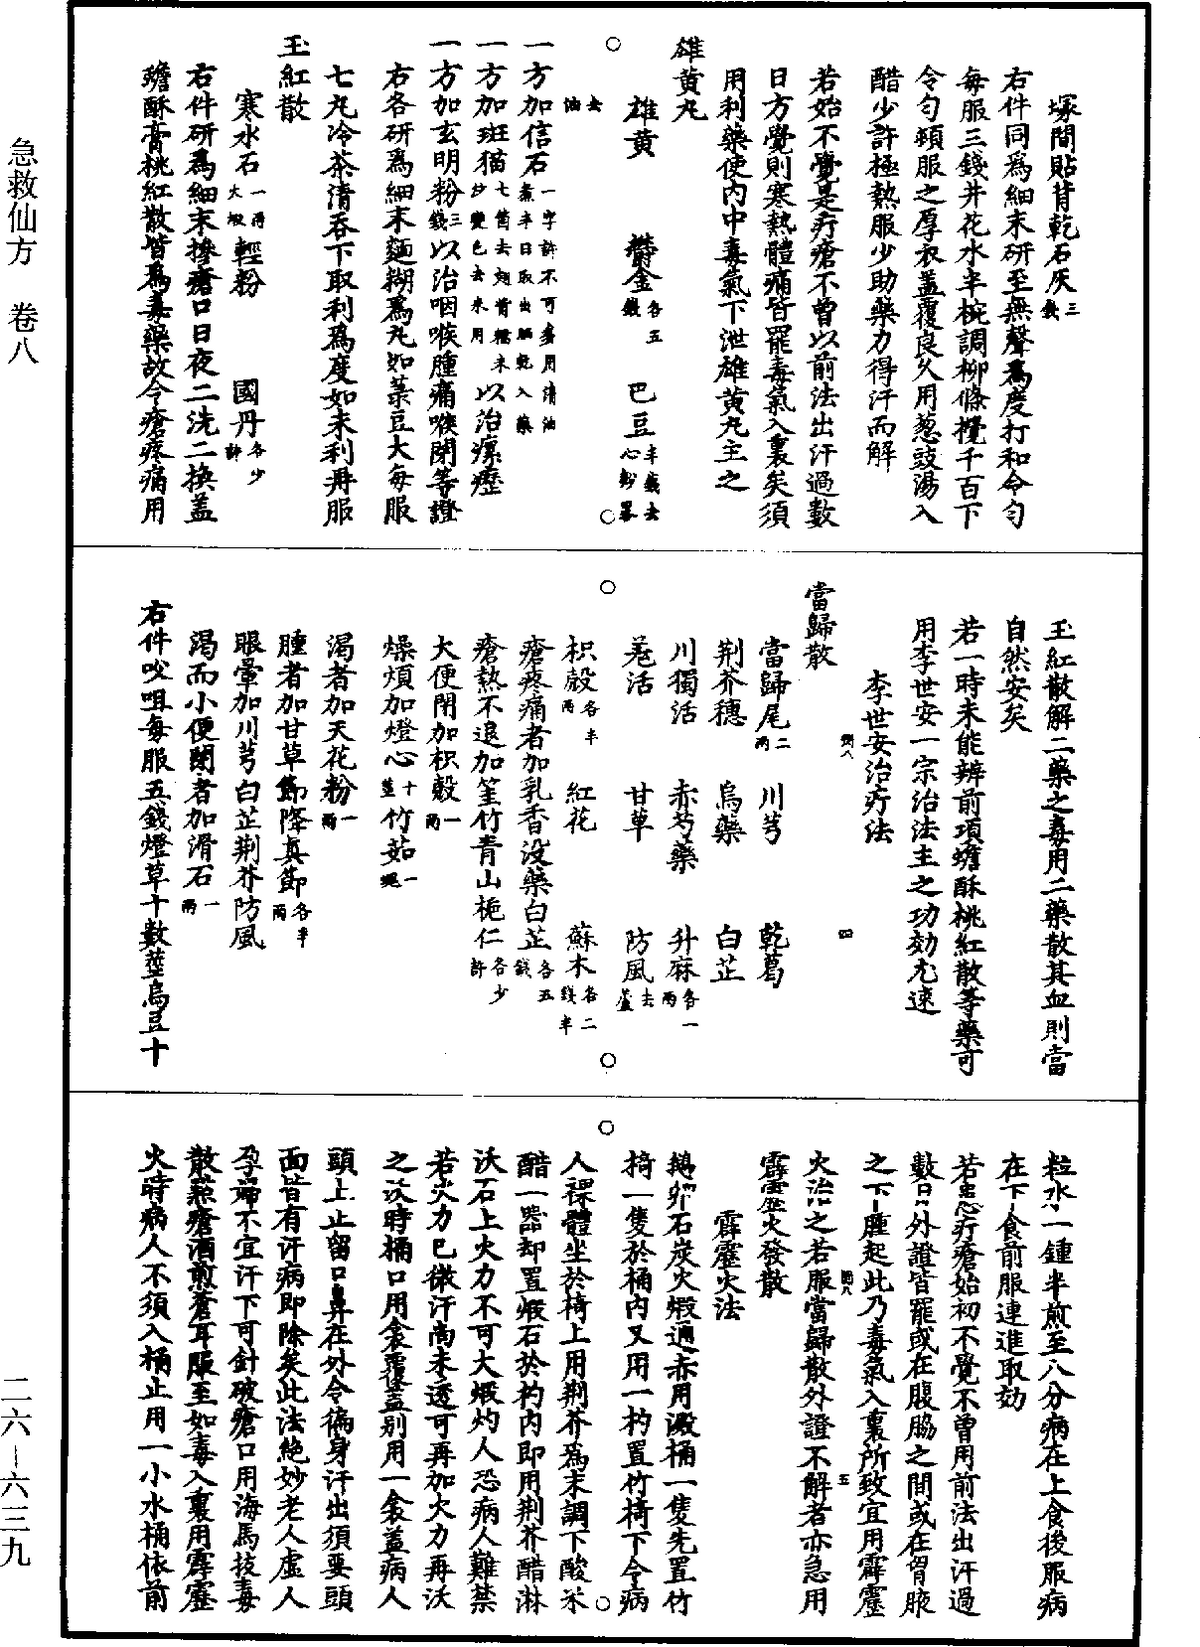 急救仙方　卷八
塚間貼背乾石灰三錢
右件同爲細末研至無聲爲度打和令勻
每服三錢井花水半椀調柳條攪千百下
令勻頓服之厚衣蓋覆良久用葱豉湯入
醋少許極熱服少助藥力得汗而解
若始不覺是疔瘡不曾以前法出汗過數
日方覺則寒熱體痛皆罷毒氣入裏矣須
用利藥使內中毒氣下泄雄黃丸主之
雄黃丸
雄黃　鬱金各五錢　巴豆半錢去心紗畧去油
一方加信石一字許不可多用清油煮半日取出晒乾入藥
一方加斑猫七箇去翅背糯米炒變色去米用以治瘰癧
一方加玄明粉三錢以治咽喉腫痛喉閉等證
右各研爲細末麵糊爲丸如菉豆大每服
七丸冷茶清吞下取利爲度如未利再服
玉紅散
寒水石一兩火煅　輕粉　國丹各少許
右件研爲細末摻瘡口日夜二洗二換蓋
蟾酥膏桃紅散皆爲毒藥故令瘡疼痛用
玉紅散解二藥之毒用二藥散其血則當
自然安矣
若一時未能辨前項蟾酥桃紅散等藥可
用李世安一宗治法主之功効尤速
李世安治疔法
當歸散
當歸尾二兩　川芎　乾葛
荆芥穗　烏藥　白芷
川獨活　赤芍藥　升麻各一兩
羌活　甘草　防風去蘆
枳殼各半兩　紅花　蘇木各二錢半
瘡疼痛者加乳香沒藥白芷各五錢
瘡熱不退加筀竹青山梔仁各少許
大便閉加枳殼一兩
燥煩加燈心十莖竹茹一塊
渴者加天花粉一兩
腫者加甘草節降真節各半兩
眼暈加川芎白芷荆芥防風
渴而小便閉者加滑石一兩
右件㕮咀每服五錢燈草十數莖烏豆十
粒水一鍾半煎至八分病在上食後服病
在下食前服連進取効
若患疔瘡始初不覺不曾用前法出汗過
數日外證皆罷或在腹脇之間或在胷腋
之下腫起此乃毒氣入裏所致宜用霹靂
火治之若服當歸散外證不解者亦急用
霹靂火發散
霹靂火法
鵝卵石炭火煅通赤用澱桶一隻先置竹
椅一隻於桶內又用一杓置竹椅下令病
人裸體坐於椅上用荆芥爲末調下酸米
醋一器却置煅石於杓內即用荆芥醋淋
沃石上火力不可大煅灼人恐病人難禁
若火力已微汗尚未透可再加火力再沃
之沃時桶口用衾覆蓋别用一衾蓋病人
頭上止留口鼻在外令徧身汗出須要頭
面皆有汗病即除矣此法絶妙老人虛人
孕婦不宜汗下可針破瘡口用海馬拔毒
散熬瘡酒煎蒼耳服至如毒入裏用霹靂
火時病人不須入桶止用一小水桶依前
二六—六三九